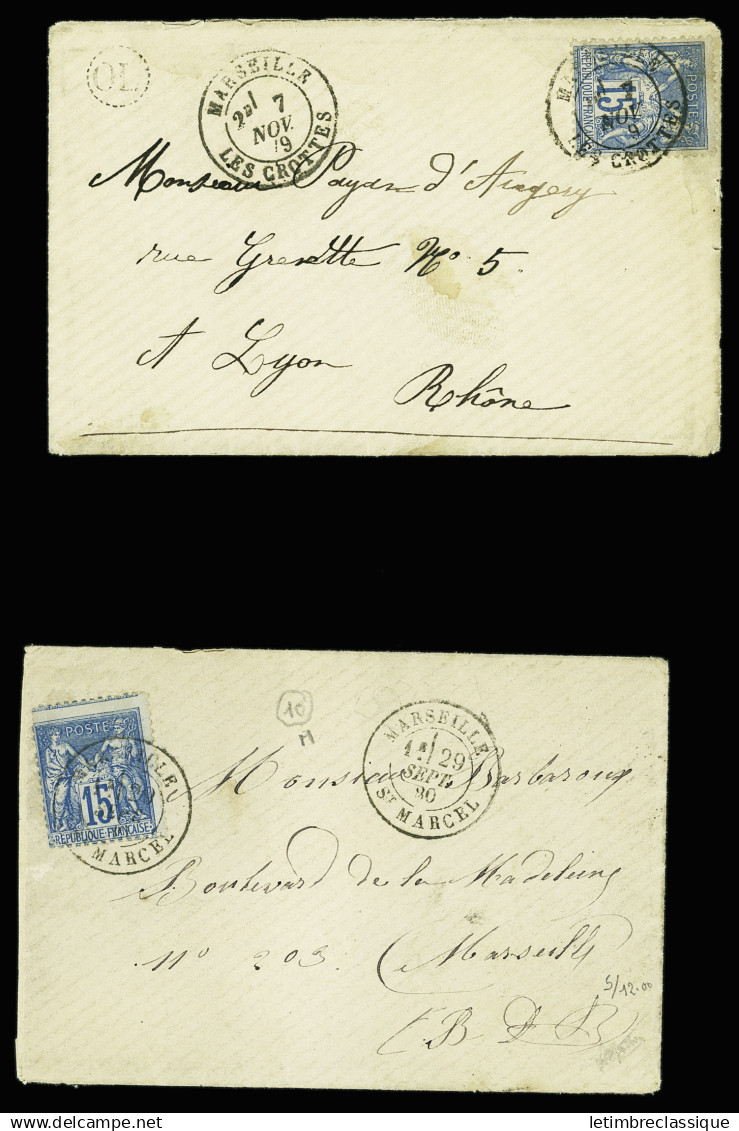 OL
MARSEILLE
2E/ 7
NOV.
79
LES CROTTES
POSTE
15
REPUBLIQUE FRANÇAISE
NOV
LES CROTTES
Monsieur Payan d'Augery
rue Grenette No 5.
A Lyon
Rhône
POSTE
15
REPUBLIQUE FRANÇAISE
MARCEL
10
M
MARSEILLE
1E/ 29
SEPT.
80
ST MARCEL
Monsieur Barbaroux
Boulevard de la Madeleine
no 203 Marseille
B D R
5/12.00
delcampe.net
letimbreclassique